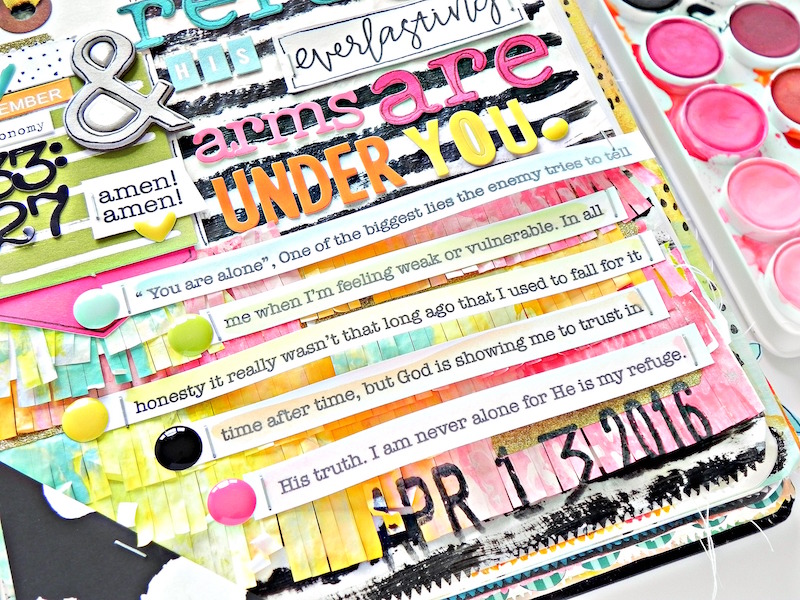 &
HIS
everlasting
arms are
UNDER YOU.
33:
27
amen!
amen!
"You are alone", One of the biggest lies the enemy tries to tell
me when I'm feeling weak or vulnerable. In all
honesty it really wasn't that long ago that I used to fall for it
time after time, but God is showing me to trust in
His truth. I am never alone for He is my refuge.
APR 13 2016